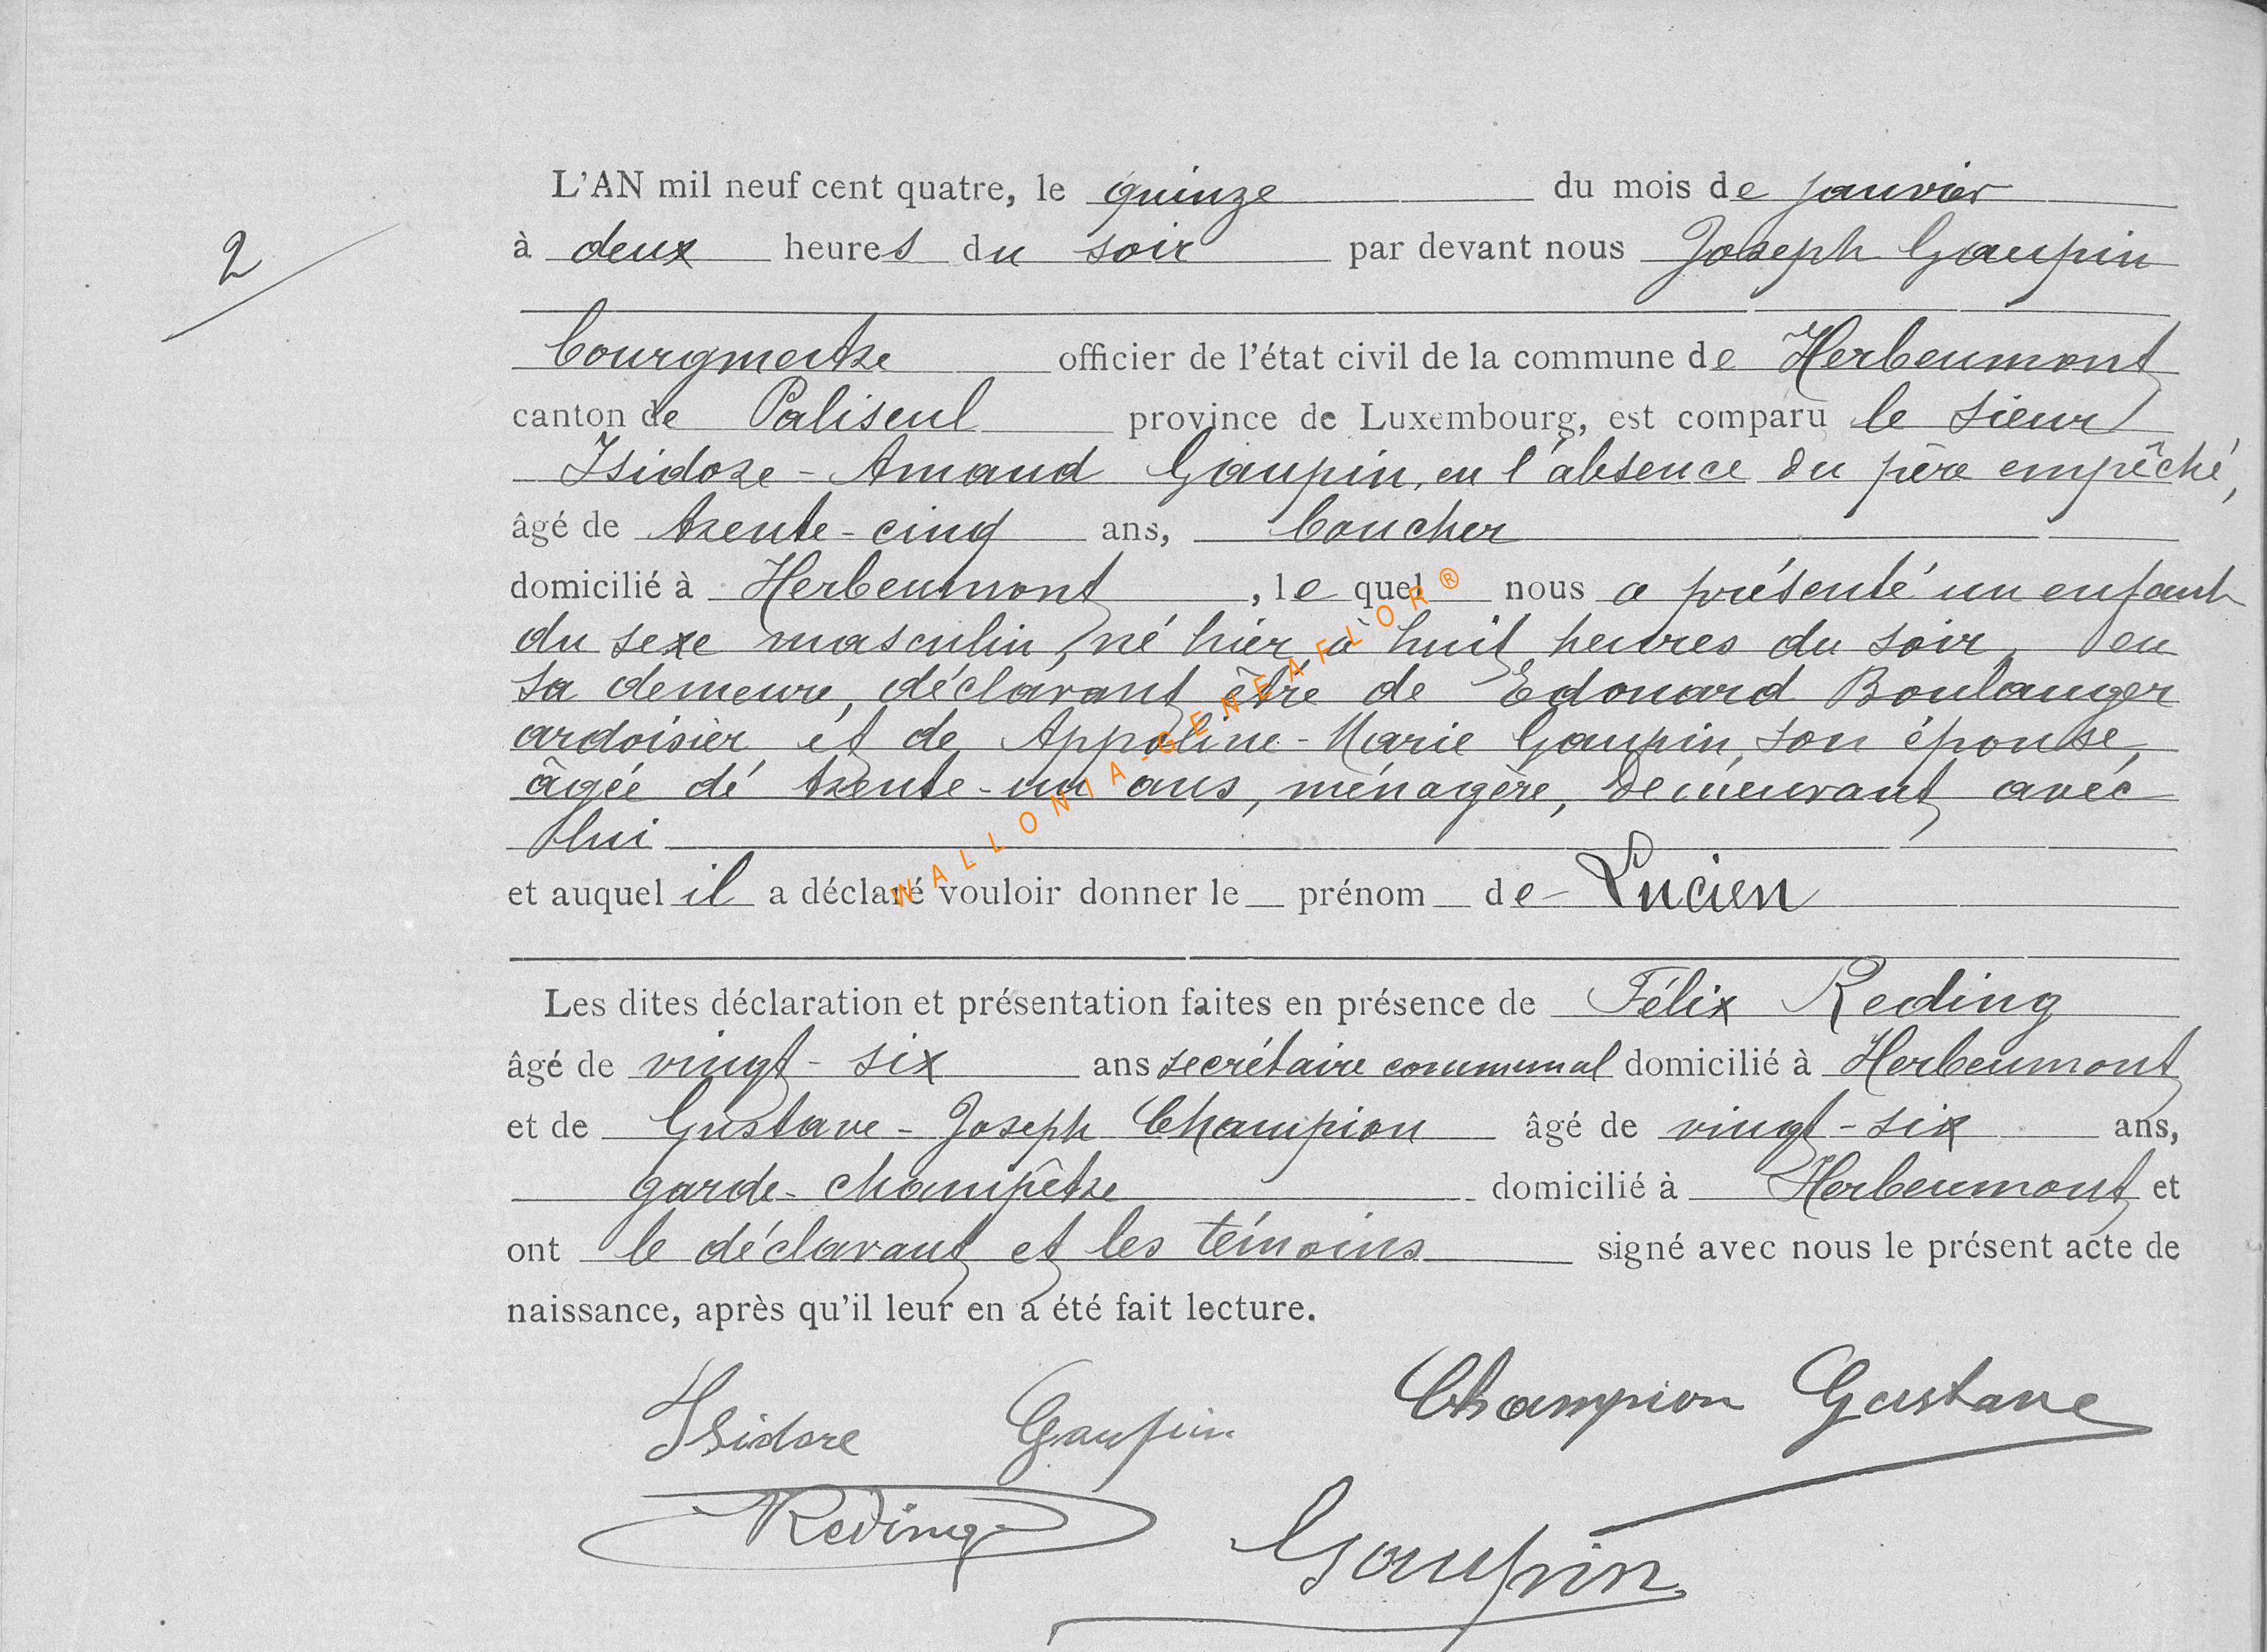 L'AN mil neuf cent quatre, le quinze du mois de janvier
2
à deux heures du soir par devant nous Joseph Gaupin
bourgmestre officier de l'état civil de la commune de Herbeumont
canton de Paliseul province de Luxembourg, est comparu le sieur
Isidore-Amand Gaupin, en l'absence du père empêché,
âgé de trente-cinq ans, boucher
domicilié à Herbeumont, lequel nous a présenté un enfant
du sexe masculin, né hier, à huit heures du soir, en
sa demeure, déclarant être de Edouard Boulanger
ardoisier et de Appoline-Marie Gaupin, son épouse,
âgée de trente-un ans, ménagère, demeurant avec
lui
et auquel il a déclaré vouloir donner le prénom de Lucien
Les dites déclaration et présentation faites en présence de Félix Reding
âgé de vingt-six ans secrétaire communal domicilié à Herbeumont
et de Gustave-Joseph Champion âgé de vingt-six ans,
garde-champêtre domicilié à Herbeumont et
ont le déclarant et les témoins signé avec nous le présent acte de
naissance, après qu'il leur en a été fait lecture.
Isidore Gaupin Champion Gustave
Reding Gaupin
WALLONIA-GENEAFLOR®